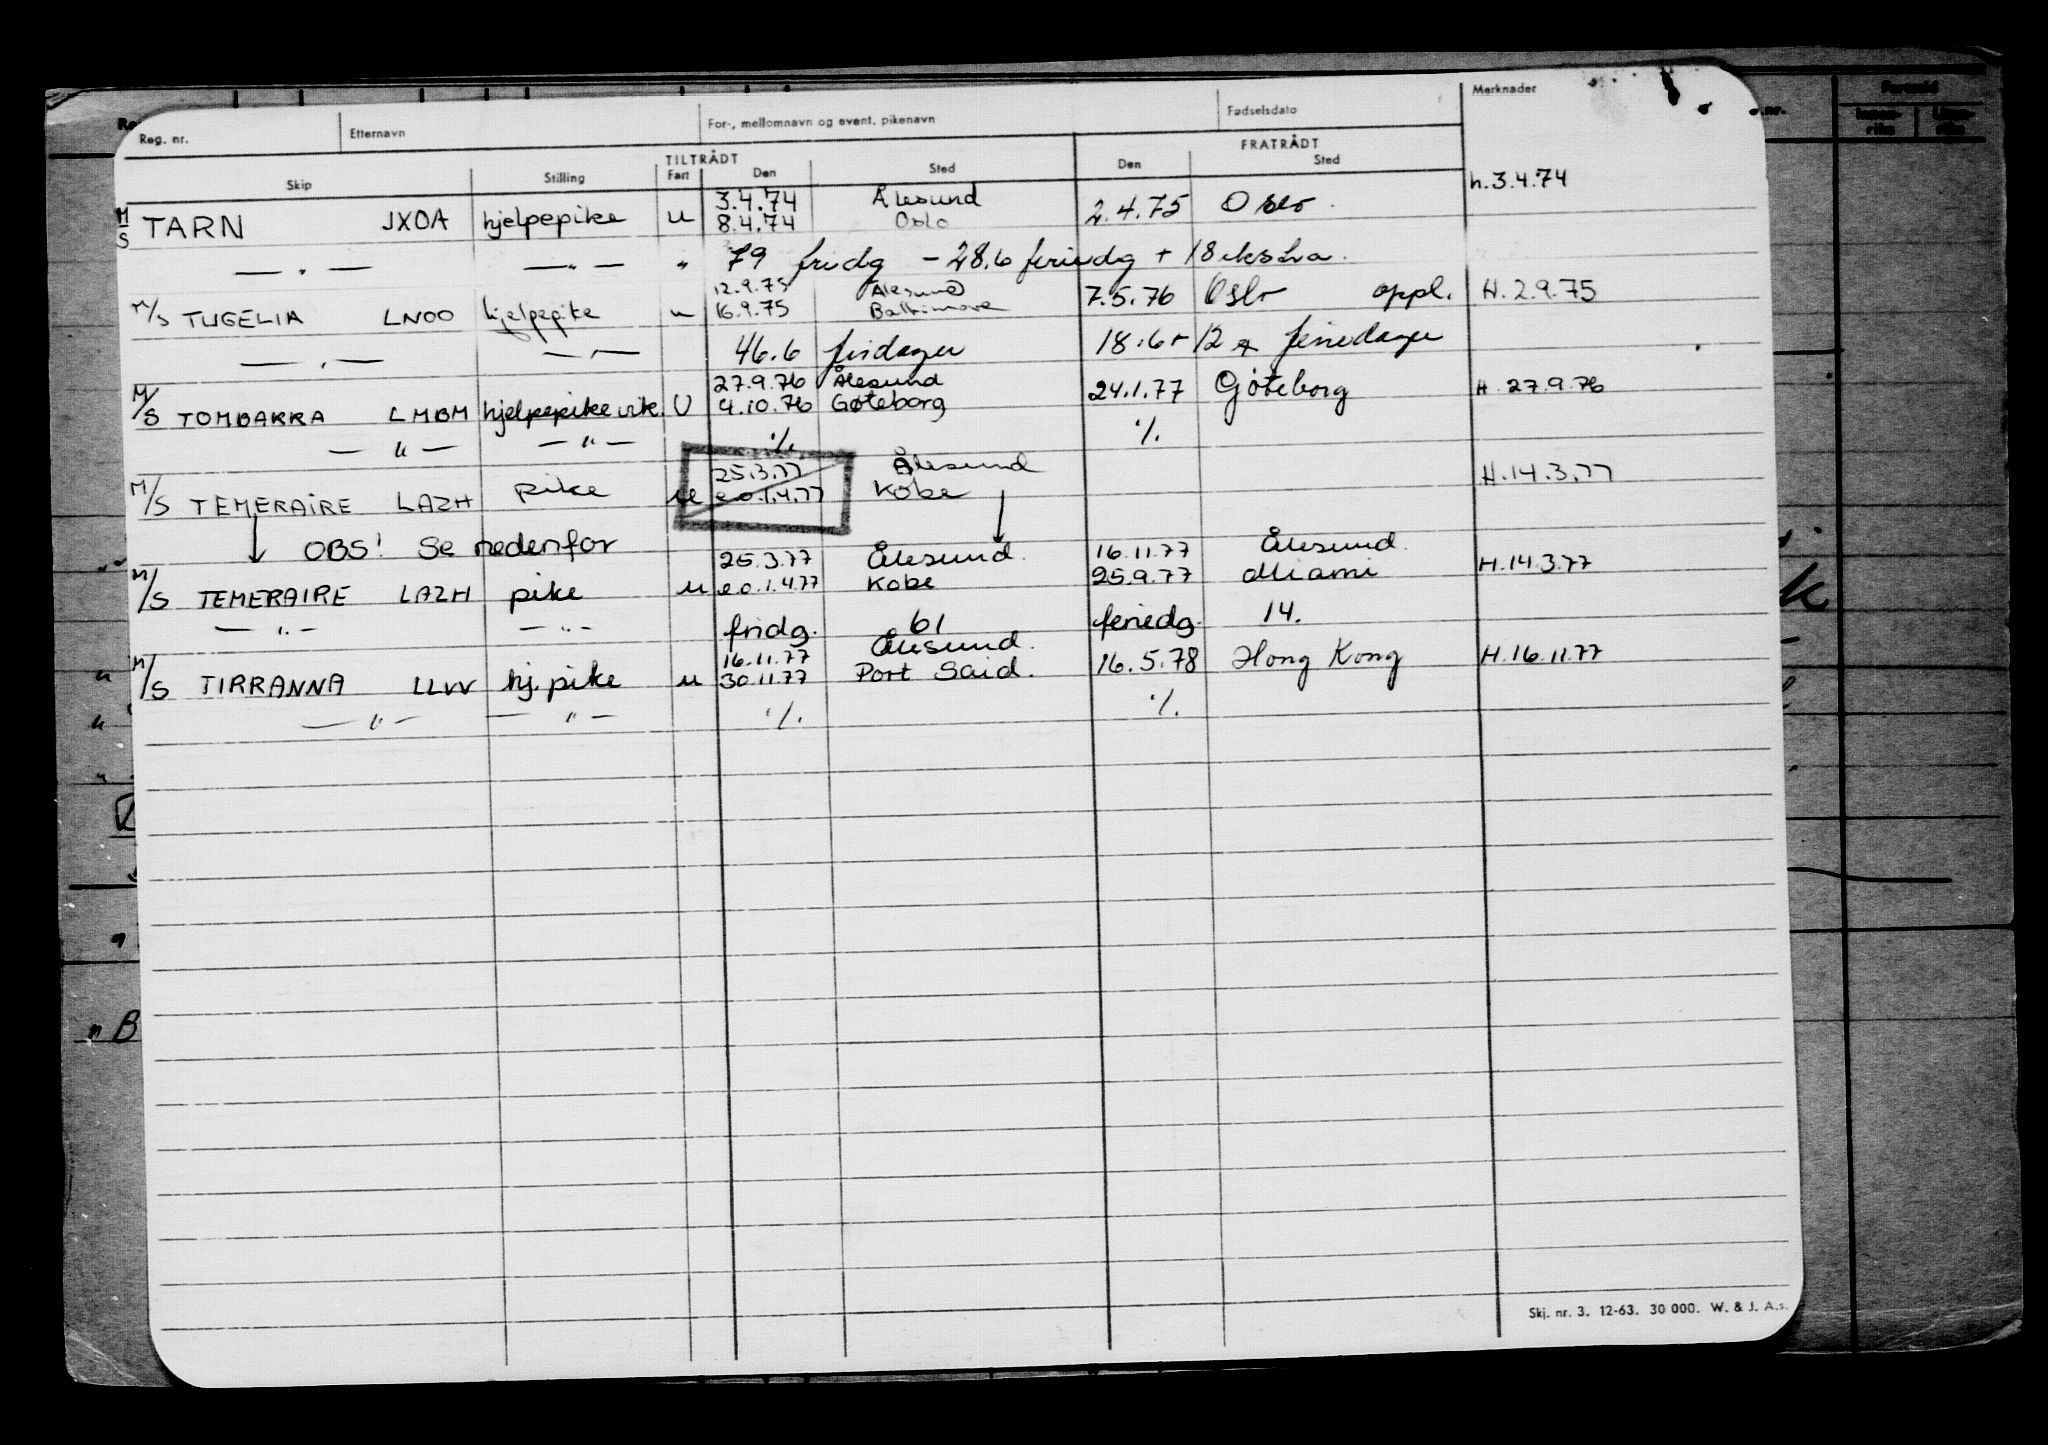 Reg. nr. Etternavn For-, mellomnavn og event. pikenavn Fødselsdato Merknader
TILTRÅDT FRATRÅDT
Skip Stilling Fart Den Sted Den Sted
3.4.74 Ålesund h.3.4.74
M/S TARN JXOA hjelpepike u 8.4.74 Oslo 2.4.75 Oslo.
— " — — " — " 79 fridg - 28.6 feriedg + 18 ekstra.
12.9.75 Ålesund
M/S TUGELIA LNOO hjelpepike u 16.9.75 Baltimore 7.5.76 Oslo oppl. H.2.9.75
— " — — " — 46.6 fridager 18.6+12 feriedager
27.9.76 Ålesund
M/S TOMBARRA LMBM hjelpepike vik. U 4.10.76 Gøteborg 24.1.77 Gøteborg H. 27.9.76
— " — — " — ./. ./.
25.3.77 Ålesund
M/S TEMERAIRE LAZH pike u e.o.1.4.77 Kobe H.14.3.77
OBS! Se nedenfor
25.3.77 Ålesund. 16.11.77 Ålesund.
M/S TEMERAIRE LAZH pike u e.o.1.4.77 Kobe 25.9.77 Miami H.14.3.77
— " — — " — fridg. 61 feriedg. 14.
16.11.77 Ålesund.
M/S TIRRANNA LLVV hj.pike u 30.11.77 Port Said. 16.5.78 Hong Kong H.16.11.77
— " — — " — ./. ./.
Skj. nr. 3. 12-63. 30 000. W. & J. A.s.